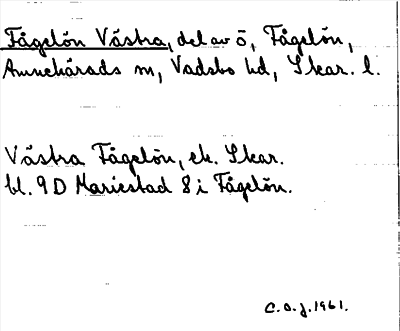 Fågelön Västra, del av ö, Fågelön,
Amnehärads sn, Vadsbo hd, Skar. l.
Västra Fågelön, ek. Skar.
bl. 9D Mariestad 8i Fågelön.
C.O.J. 1961.